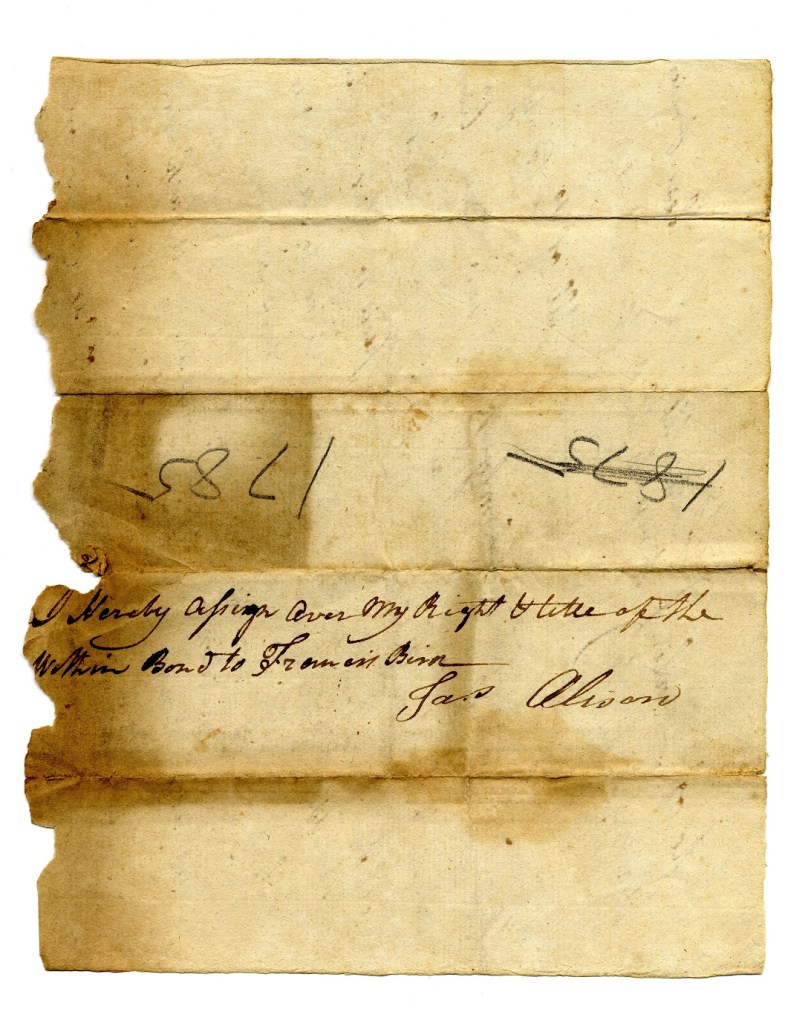 1785 1875
I Hereby Assign Over My Right & title of the
Within Bond to Francis Birn
Jas